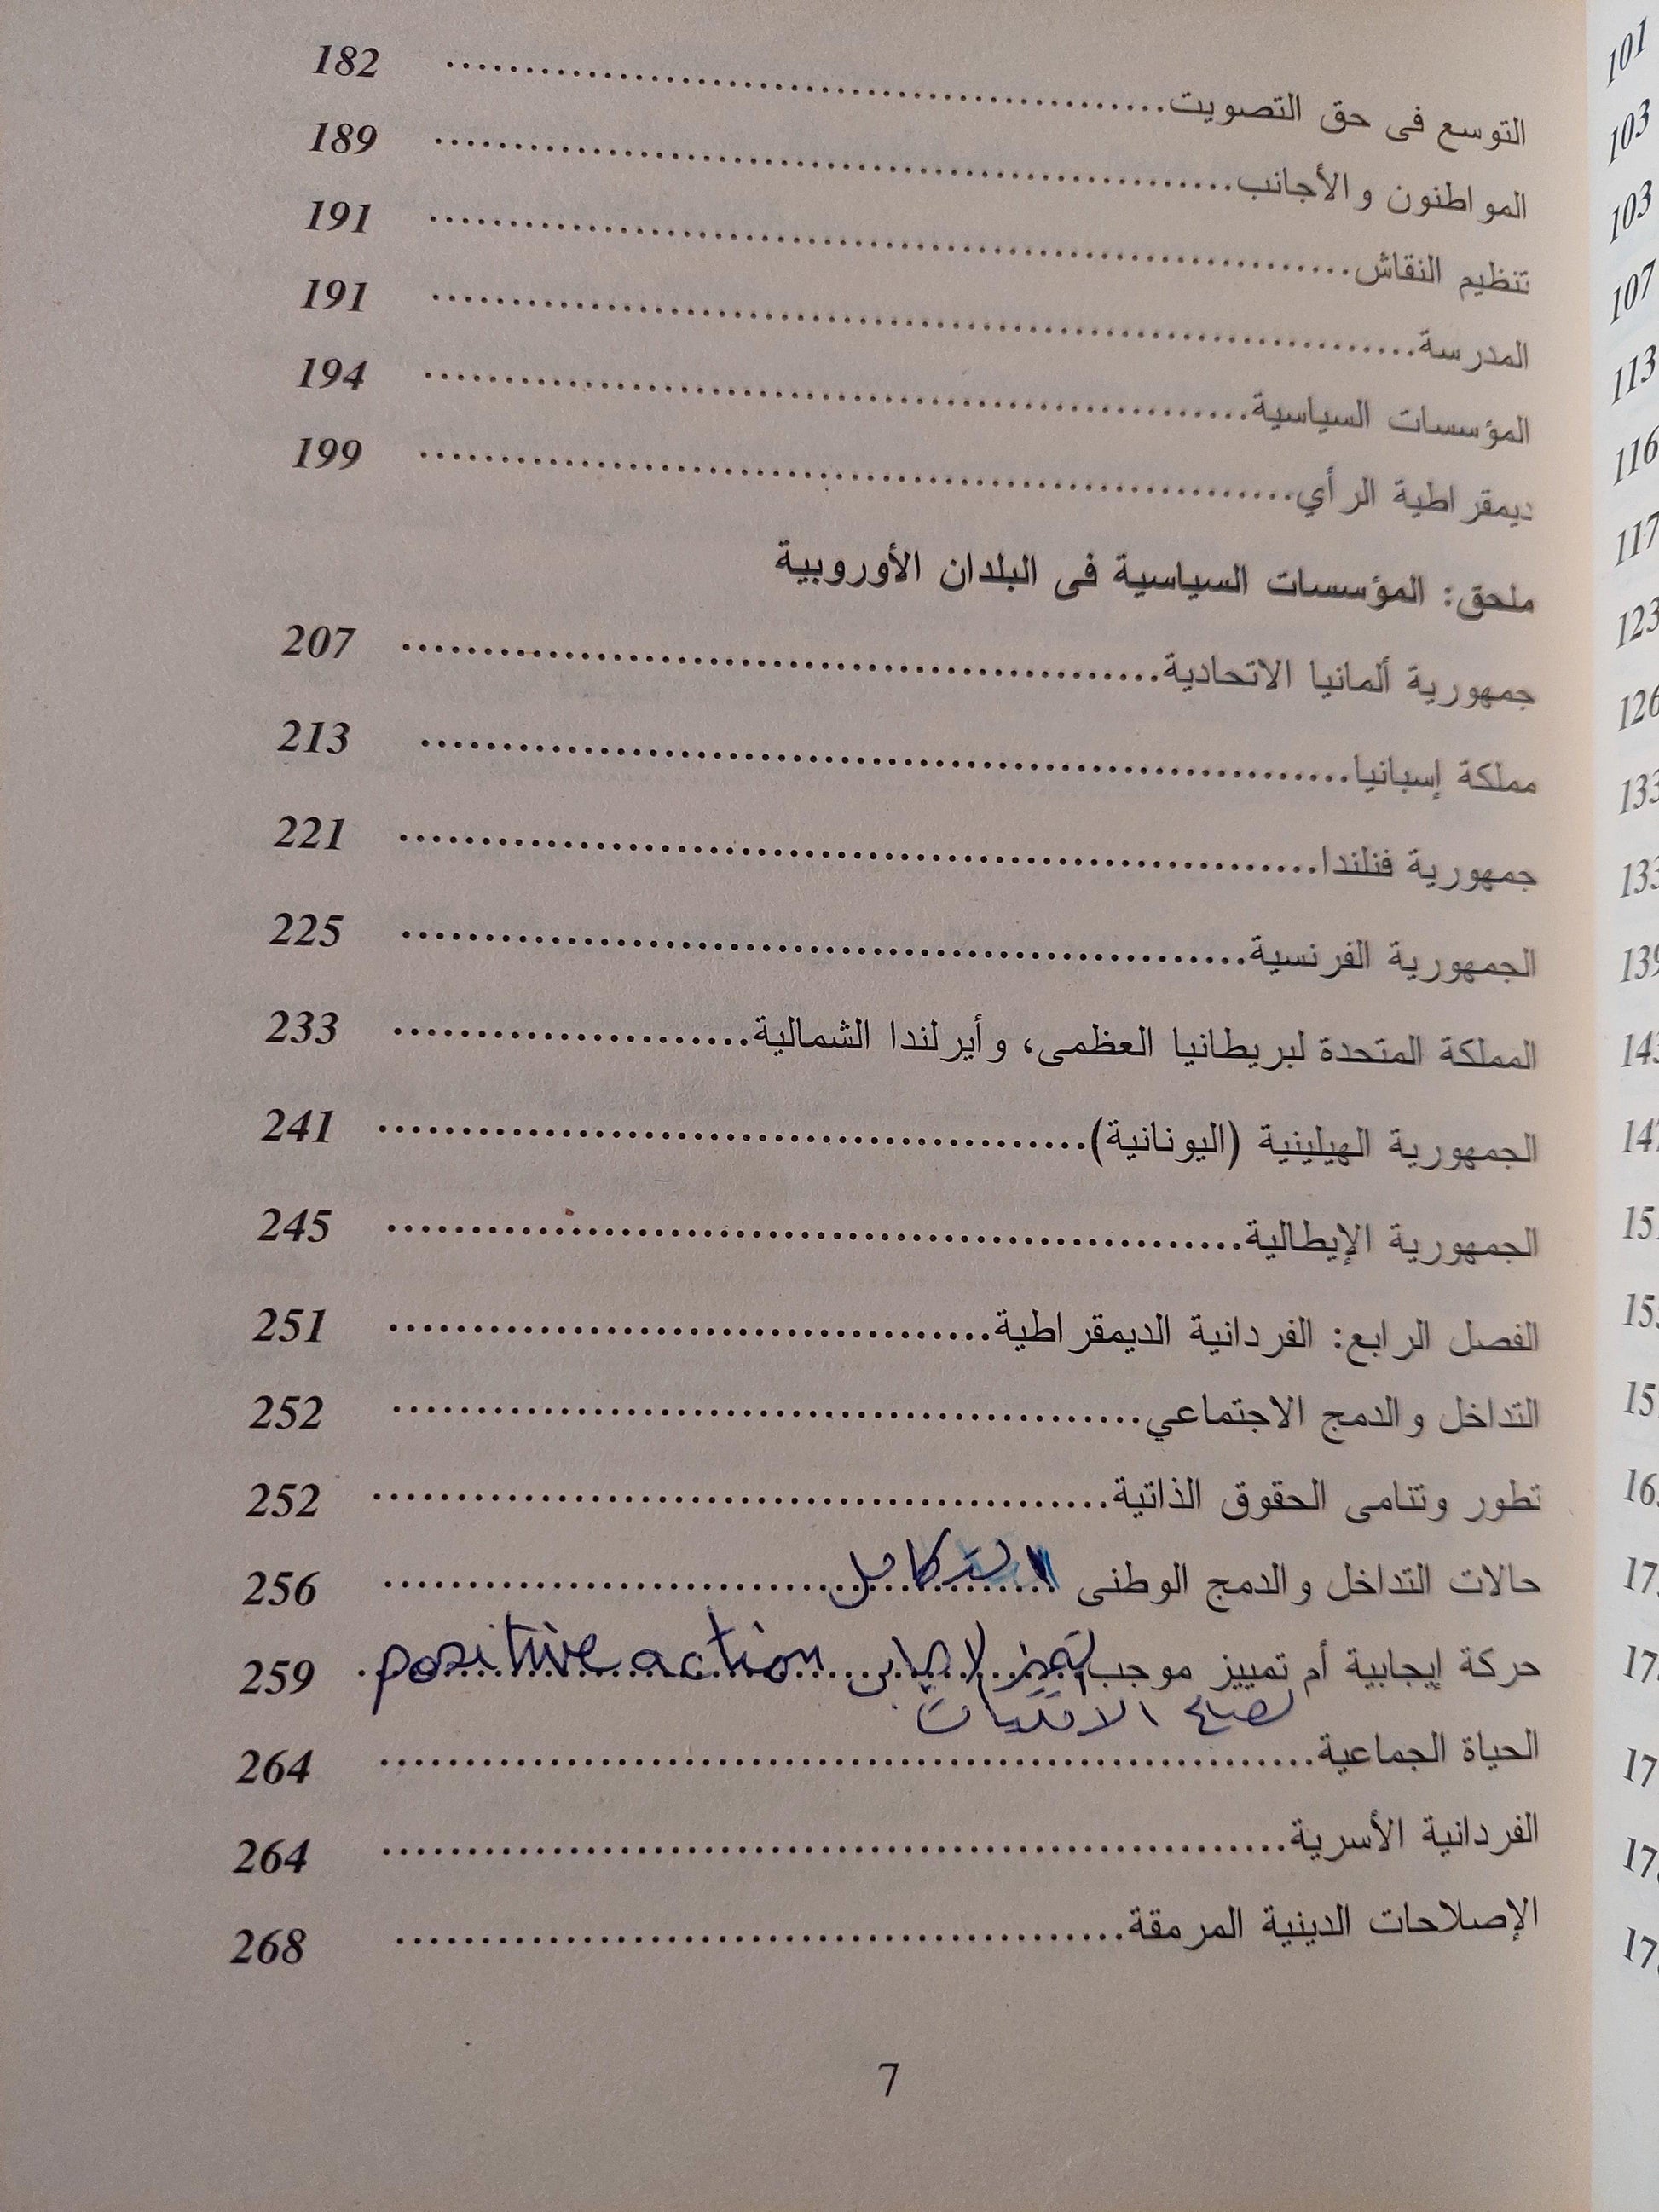 التوسع فى حق التصويت.......................................... 182
المواطنون والأجانب.......................................... 189
تنظيم النقاش.......................................... 191
المدرسة.......................................... 191
المؤسسات السياسية.......................................... 194
ديمقراطية الرأي.......................................... 199
ملحق: المؤسسات السياسية فى البلدان الأوروبية
جمهورية ألمانيا الاتحادية.......................................... 207
مملكة إسبانيا.......................................... 213
جمهورية فنلندا.......................................... 221
الجمهورية الفرنسية.......................................... 225
المملكة المتحدة لبريطانيا العظمى، وأيرلندا الشمالية...................... 233
الجمهورية الهيلينية (اليونانية).......................................... 241
الجمهورية الإيطالية.......................................... 245
الفصل الرابع: الفردانية الديمقراطية.................................... 251
التداخل والدمج الاجتماعي.......................................... 252
تطور وتنامى الحقوق الذاتية.......................................... 252
حالات التداخل والدمج الوطنى .......................................... 256
حركة إيجابية أم تمييز موجب تمييز إيجابى positive action 259
لصالح الأقليات
الحياة الجماعية.......................................... 264
الفردانية الأسرية.......................................... 264
الإصلاحات الدينية المرمقة.......................................... 268
7
101
103
103
107
113
116
117
123
126
133
133